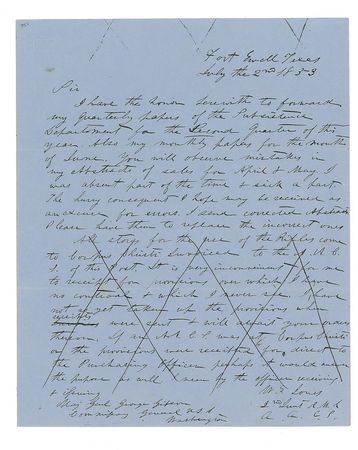 Fort Ewell Texas
July the 2nd 1853
Sir
I have the honor herewith to forward
my Quarterly papers of the Subsistence
Department for the Second Quarter of this
year. Also my monthly papers for the month
of June. You will observe mistakes in
my Abstracts of sales for April & May. I
was absent part of the time & sick a part
The hurry consequent I hope may be received as
an excuse for errors. I send corrected Abstracts
Please have them to replace the incorrect ones
All stores for the use of the Rifles come
to Corpus Christi invoiced to the A. A. C.
S. of this Post. It is very inconvenient for me
to receipt for provisions over which I have
no control & which I never see. I have
not as yet taken up the provisions when
receipts
were sent & will await your orders
thereon. If an A. A. C. S. was at Corpus Christi
or the provisions were receipted for direct to
the Purchasing Officer perhaps it would answer
the purpose as well seen by the officer receiving
& issuing
W. E. Jones
Maj. Genl. George Gibson
2nd Lieut R. M. R.
Commissary General U S A
A. A. C. S.
Washington